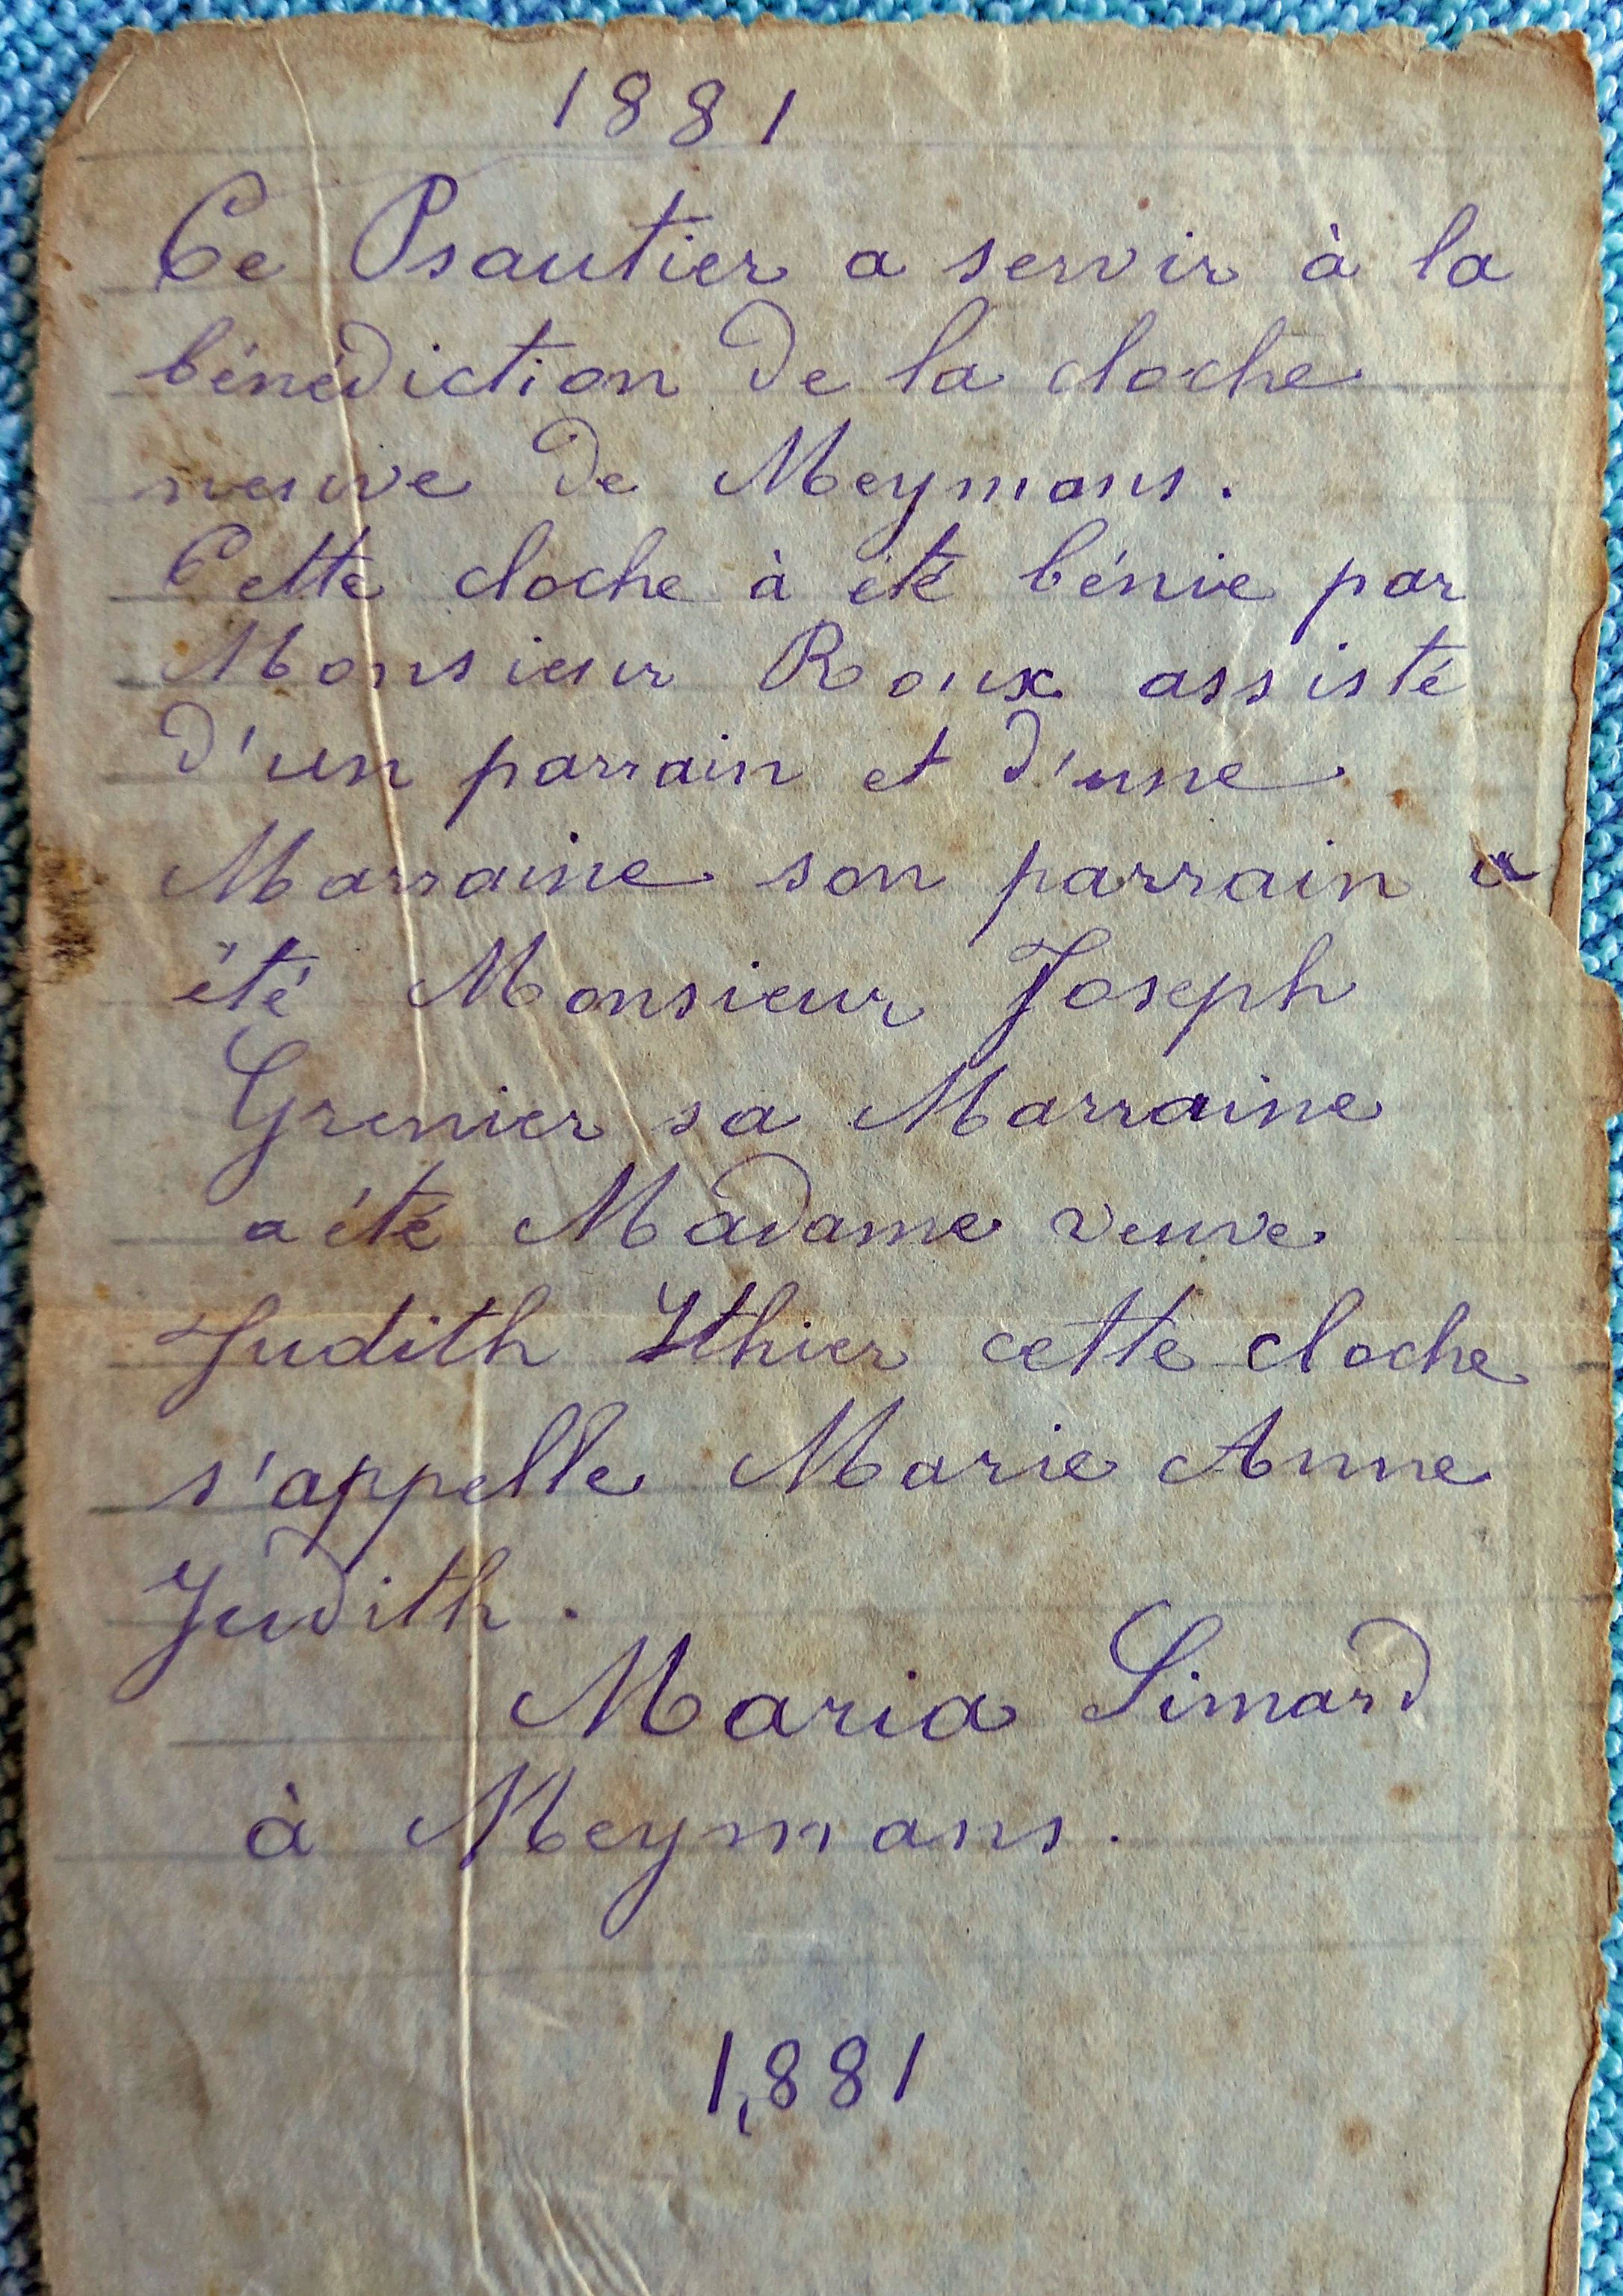 1881
Ce Psautier a servir à la
bénédiction de la cloche
neuve de Meymans.
Cette cloche à été bénie par
Monsieur Roux assisté
d'un parrain et d'une
Marraine son parrain a
été Monsieur Joseph
Grenier sa Marraine
a été Madame veuve
Judith Ithier cette cloche
s'appelle Marie Anne
Judith.
Maria Simard
à Meymans.
1,881